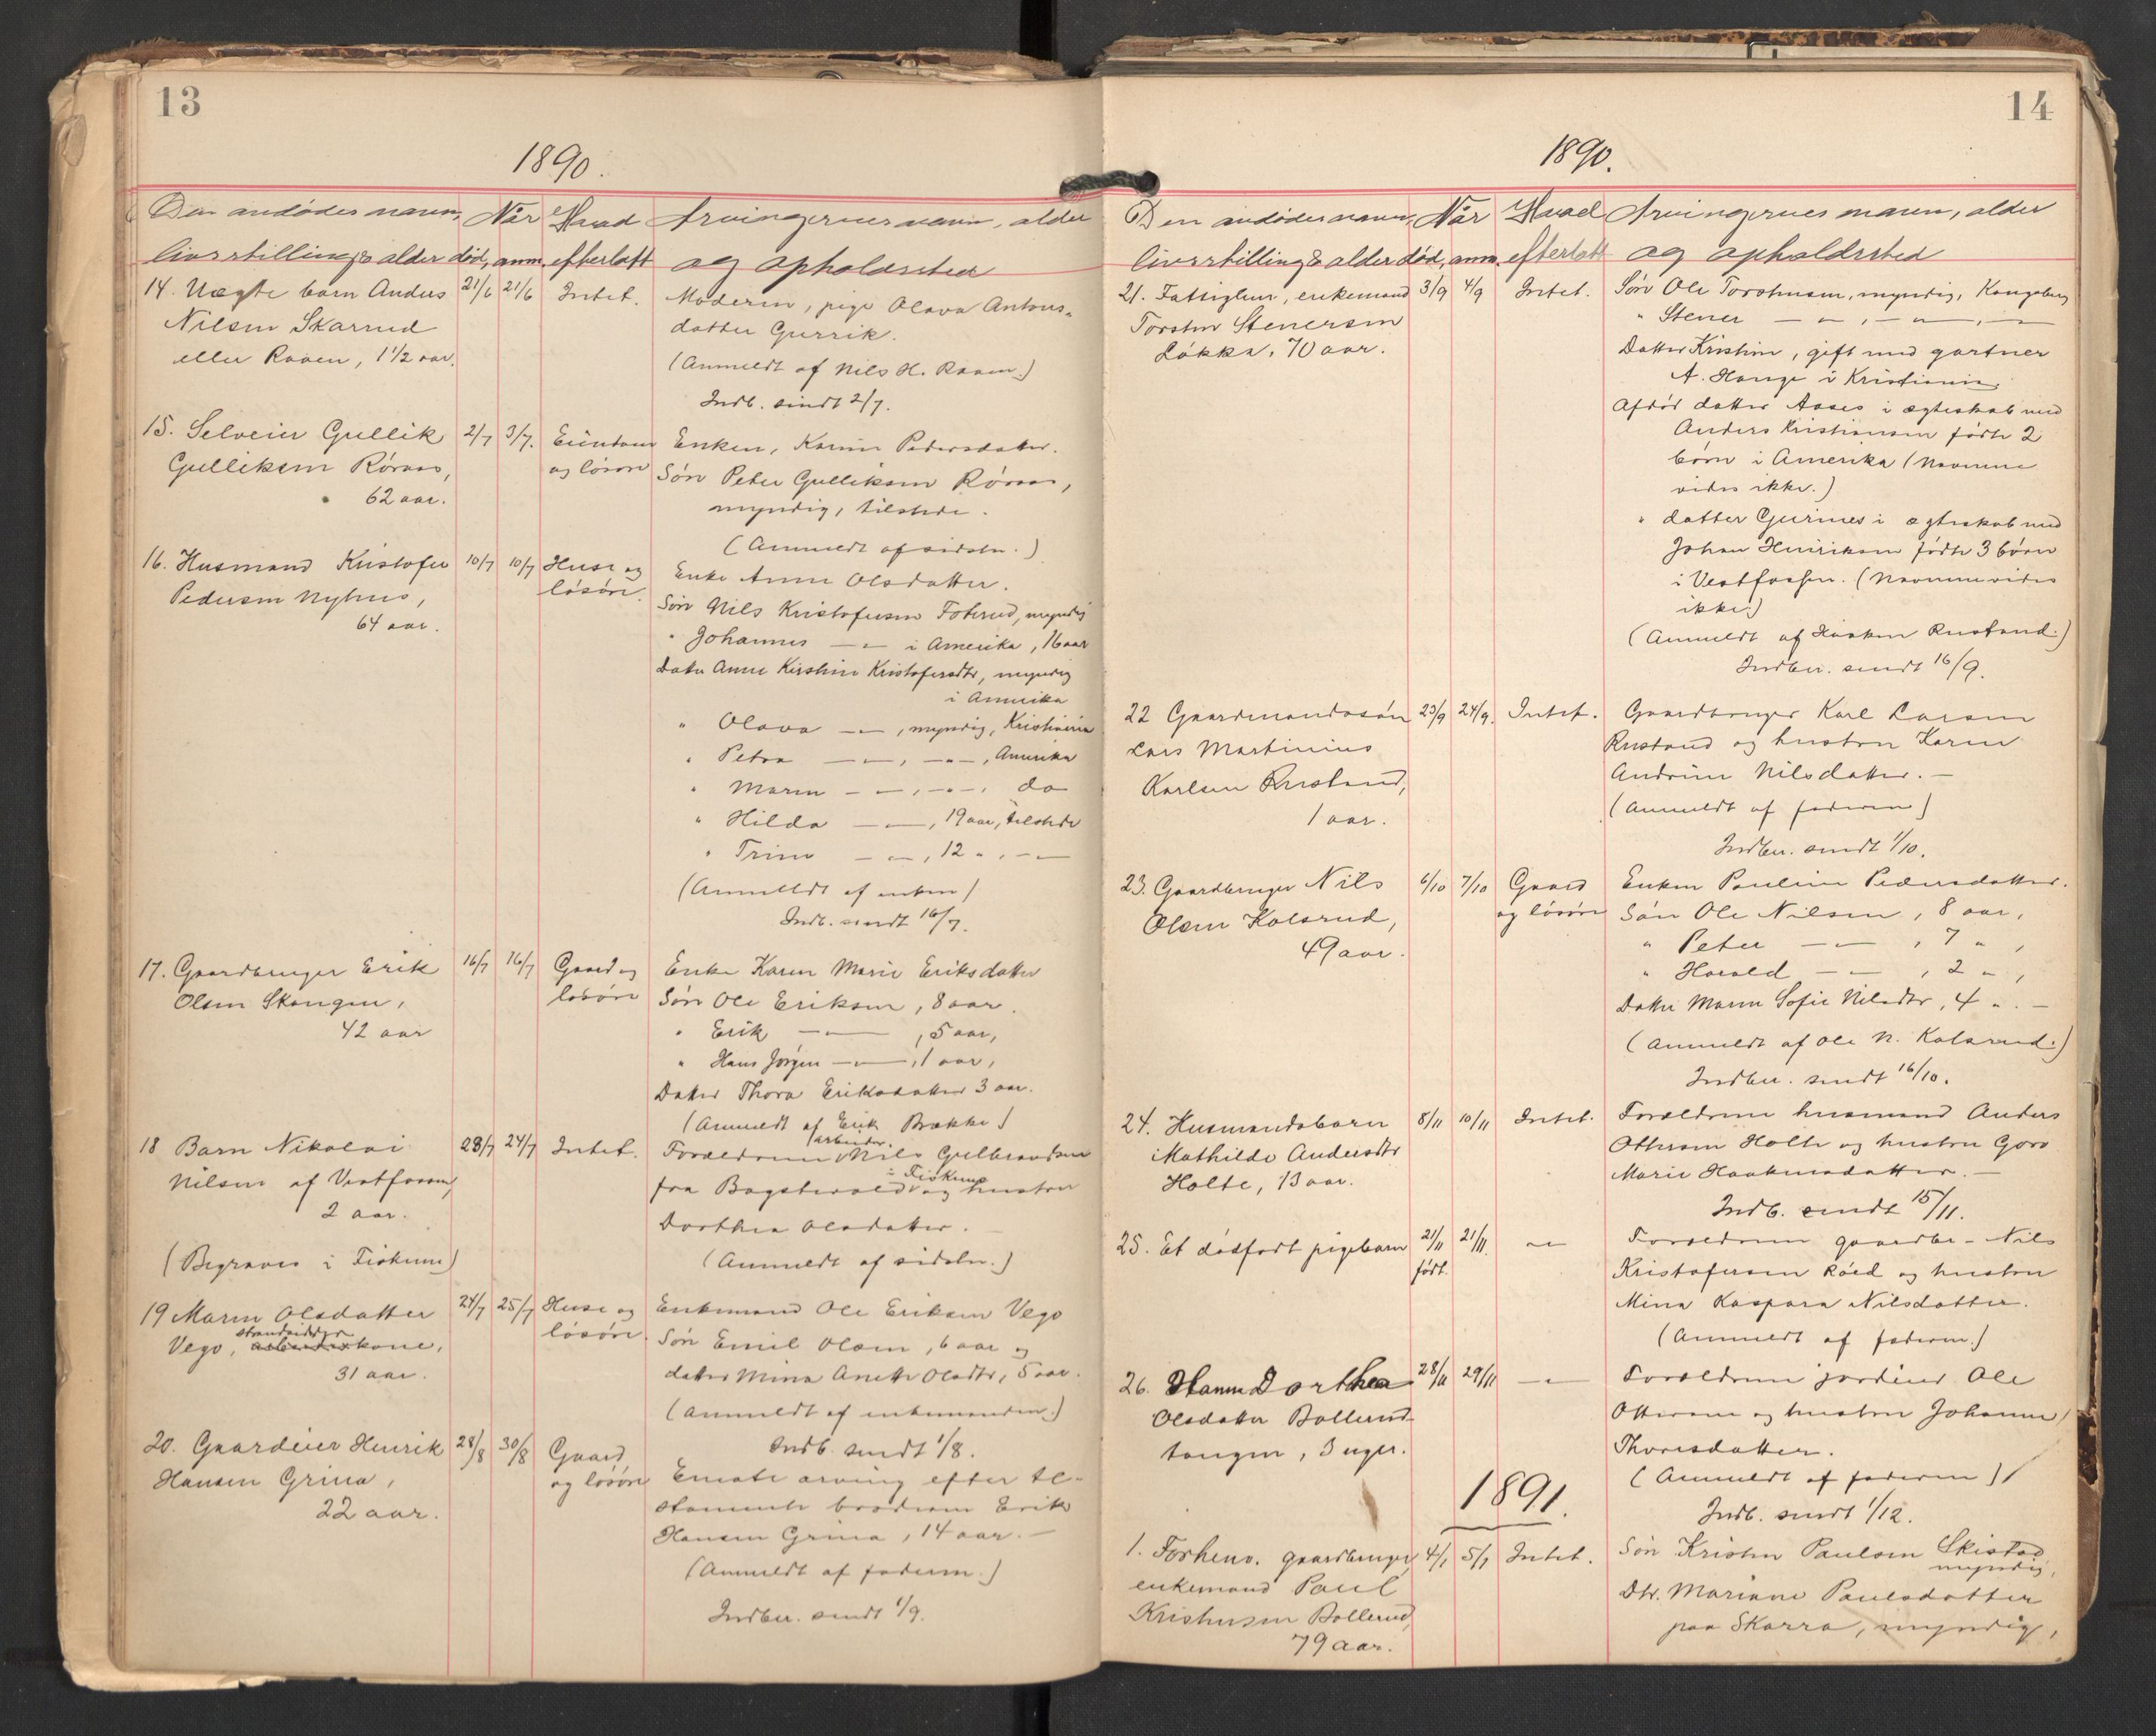 13
1890.
Den avdødes navn, Når Hvad Arvingernes navn, alder
livsstilling & alder død, anm. efterlatt og opholdssted
14. Uægte barn Anders 21/6 21/6 Intet. Moderen, pige Olava Antons-
Nilsen Skarrud datter Gurrik.
eller Raaen, 1 1/2 aar. (Anmeldt af Nils H. Raaen.)
Indb. sendt 2/7.
15. Selveier Gullik 2/7 3/7. Eiendom Enken, Karen Pedersdatter.
Gulliksen Röraas, og lösöre Sön Peter Gulliksen Röraas,
62 aar. myndig, tilstede.
(Anmeldt af sidstn.)
16. Husmand Kristofer 10/7 10/7 Huse og Enke Anne Olsdatter.
Pedersen Nyhus, lösöre. Sön Nils Kristofersen Foterud, myndig
64 aar. " Johannes — " — i Amerika, 16 aar
Datter Anne Kirstine Kristofersdtr, myndig
i Amerika
" Olava — " —, myndig, Kristiania
" Petra — " —, — " —, Amerika
" Maren — " —, — " —, do
" Hilda — " —, 19 aar, tilstede
" Trine — " —, 12 ", — " —
(Anmeldt af enken)
Indb. sendt 16/7.
17. Gaardbruger Erik 16/7 16/7 Gaard og Enke Karen Marie Eriksdatter
Olsen Skangen, lösöre Sön Ole Eriksen, 8 aar.
42 aar " Erik — " —, 5 aar,
" Hans Jørgen — " —, 1 aar,
Datter Thora Eriksdatter 3 aar.
(Anmeldt af Erik Brække)
18 Barn Nikolai 23/7 24/7 Intet. Forældrene arbeider. Nils Gulbrandsen
Nilsen af Vestfossen, fra Bagstevold i Fiskum og hustru
2 aar. Dorthea Olsdatter.
(Begraves i Fiskum) (Anmeldt af sidstn.)
19 Maren Olsdatter 24/7 25/7 Huse og Enkemand Ole Eriksen Vego
Vego, arbeiderkone, strandsidder lösöre. Sön Emil Olsen, 6 aar og
31 aar. datter Mina Anette Olsdtr, 5 aar.
(Anmeldt af enkemanden.)
Indb. sendt 1/8.
20. Gaardeier Henrik 28/8 30/8 Gaard Eneste arving efter te-
Hansen Grina, og lösöre stamente broderen Erik
22 aar. Hansen Grina, 14 aar. —
(Anmeldt af faderen.)
Indber. sendt 1/9.
14
1890.
Den avdødes navn, Når Hvad Arvingernes navn, alder
livsstilling & alder død, anm. efterlatt og opholdssted
21. Fattiglem, enkemand 3/9 4/9 Intet. Sön Ole Torstensen, myndig, Kongsberg
Torsten Stenersen " Stener — " —, — " —, —
Løkka, 70 aar. Datter Kristine, gift med gartner
A. Hauge i Kristiania.
Afdød datter Aases i ægteskab med
Anders Kristiansen födte 2
börn i Amerika (Navnene
vides ikke.)
" datter Gurines i ægteskab med
Johan Henriksen födte 3 börn
i Vestfossen. (Navnene vides
ikke.)
(Anmeldt af Haaken Rustand.)
Indber. sendt 16/9.
22 Gaardmandssön 23/9 24/9. Intet. Gaardbruger Karl Larsen
Lars Martinius Rustand og hustru Karen
Karlsen Rustand, Andrine Nilsdatter. —
1 aar. (Anmeldt af faderen)
Indber. sendt 1/10.
23. Gaardbruger Nils 6/10 7/10 Gaard Enken Pauline Pedersdatter.
Olsen Kolsrud, og lösöre Sön Ole Nilsen, 8 aar,
49 aar. " Peter — " —, 7 ",
" Harald — " —, 2 ",
Datter Maren Sofie Nilsdtr, 4 ". —
(Anmeldt af Ole N. Kolsrud.)
Indber. sendt 16/10.
24. Husmandsbarn 8/11 10/11 Intet. Forældrene husmand Anders
Mathilde Andersdtr Ottersen Holte og hustru Goro
Holte, 13 aar. Marie Haakensdatter. —
Indb. sendt 15/11.
25. Et dödfödt pigebarn 21/11 födt. 21/11. — " — Forældrene gaardbr. Nils
Kristofersen Röed og hustru
Mina Kaspara Nilsdatter.
(Anmeldt af faderen.)
26. Hanna Dorthea 28/11 29/11 — " — Forældrene jordeier Ole
Olsdatter Bollerud- Ottersen og hustru Johanne
tangen, 3 uger. Thoresdatter.
(Anmeldt af faderen)
Indb. sendt 1/12.
1891.
1. Forhenv. gaardbruger, 4/1 5/1 Intet. Sön Kristen Paulsen Skistad
enkemand Paul myndig,
Kristensen Bollerud, Dtr. Mariane Paulsdatter
79 aar. paa Skarra, myndig,